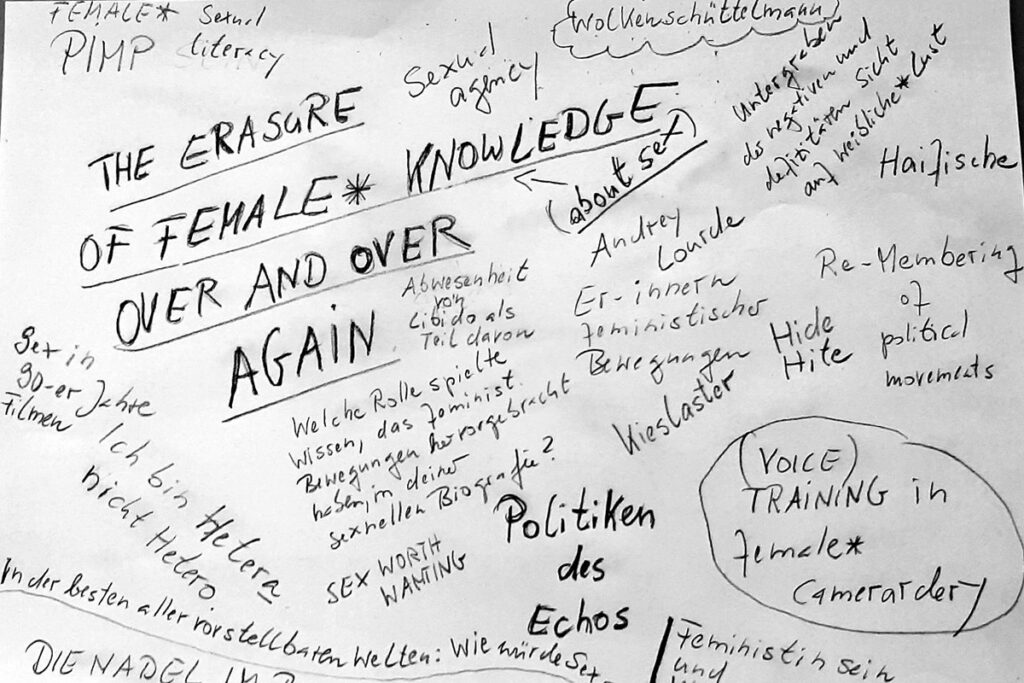 FEMALE* Sexual
PIMP literacy
Sexual
agency
Wolkenschüttelmann
Untergraben
des negativen und
defizitären Sicht
auf weibliche* Lust
THE ERASURE
OF FEMALE* KNOWLEDGE
(about sex)
OVER AND OVER
AGAIN
Haifische
Audrey
Lourde
Re-Membering
of
political
movements
Abwesenheit
von
Libido als
Teil davon
Er-innern
feministischer
Bewegungen
Hide
Hite
Kieslaster
Sex in
90-er Jahre
Filmen
Ich bin Hetera
nicht Hetero
Welche Rolle spielte
Wissen, das feminist.
Bewegungen hervorgebracht
haben, in deiner
sexuellen Biografie?
SEX WORTH
WANTING
Politiken
des
Echos
(VOICE)
TRAINING in
female*
Camerardery
In der besten aller vorstellbaren Welten: Wie würde Sex
DIE NADEL IM
Feministin sein
und